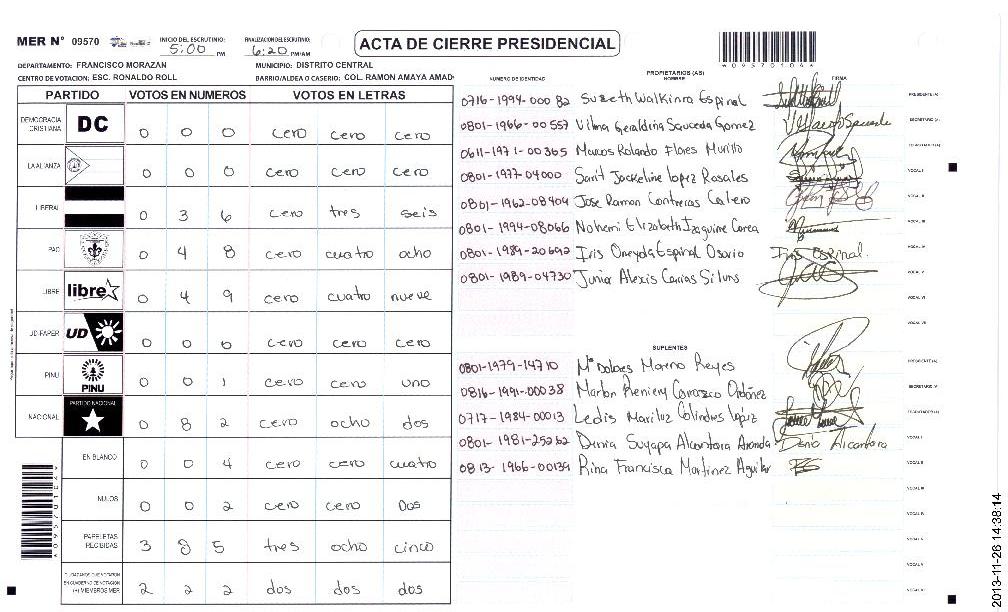 MER N° 09570
INICIO DEL ESCRUTINIO: 5:00 PM
FINALIZACION DEL ESCRUTINIO: 6:20 PM/AM
ACTA DE CIERRE PRESIDENCIAL
*095701046*
DEPARTAMENTO: FRANCISCO MORAZAN
MUNICIPIO: DISTRITO CENTRAL
CENTRO DE VOTACION: ESC. RONALDO ROLL
BARRIO/ALDEA O CASERIO: COL. RAMON AMAYA AMAD
PARTIDO VOTOS EN NUMEROS VOTOS EN LETRAS
DEMOCRACIA CRISTIANA DC 0 0 0 cero cero cero
LA ALIANZA 0 0 0 cero cero cero
LIBERAL 0 3 6 cero tres seis
PAC 0 4 8 cero cuatro ocho
LIBRE libre 0 4 9 cero cuatro nueve
UD-FAPER UD 0 0 0 cero cero cero
PINU PINU 0 0 1 cero cero uno
NACIONAL PARTIDO NACIONAL 0 8 2 cero ocho dos
EN BLANCO 0 0 4 cero cero cuatro
NULOS 0 0 2 cero cero Dos
PAPELETAS RECIBIDAS 3 8 5 tres ocho cinco
CIUDADANOS QUE VOTARON EN CUADERNO DE VOTACION (+) MIEMBROS MER 2 2 2 dos dos dos
NUMERO DE IDENTIDAD
PROPIETARIOS (AS)
NOMBRE
FIRMA
0716-1994-000 82 Suzeth Walkinra Espinal PRESIDENTE (A)
0801-1966-00557 Vilma Geraldina Sauceda Gomez SECRETARIO (A)
0611-1971-00365 Marcos Rolando Flores Murillo
0801-1977-04000 Sarit Jackeline Lopez Rosales VOCAL I
0801-1962-08404 Jose Ramon Contreras Calero VOCAL II
0801-1994-08066 Nohemi Elizabeth Izaguirre Correa VOCAL III
0801-1989-20692 Iris Oneyda Espinal Osorio Iris Espinal. VOCAL IV
0801-1989-04730 Junior Alexis Carias VOCAL V
VOCAL VI
VOCAL VII
SUPLENTES
0801-1979-14710 Mª Dolores Moreno Reyes PRESIDENTE (A)
0816-1991-00038 Marlon Reniery Carrasco Ordoñez SECRETARIO (A)
0717-1984-00013 Ledis Mariluz Colindres Lopez
0801-1981-25262 Dania Suyapa Alcantara Aranda Dania Alcantara VOCAL I
0813-1966-00139 Rina Francisca Martinez Aguilar VOCAL II
VOCAL III
VOCAL IV
VOCAL V
VOCAL VI
2013-11-26 14:38:14